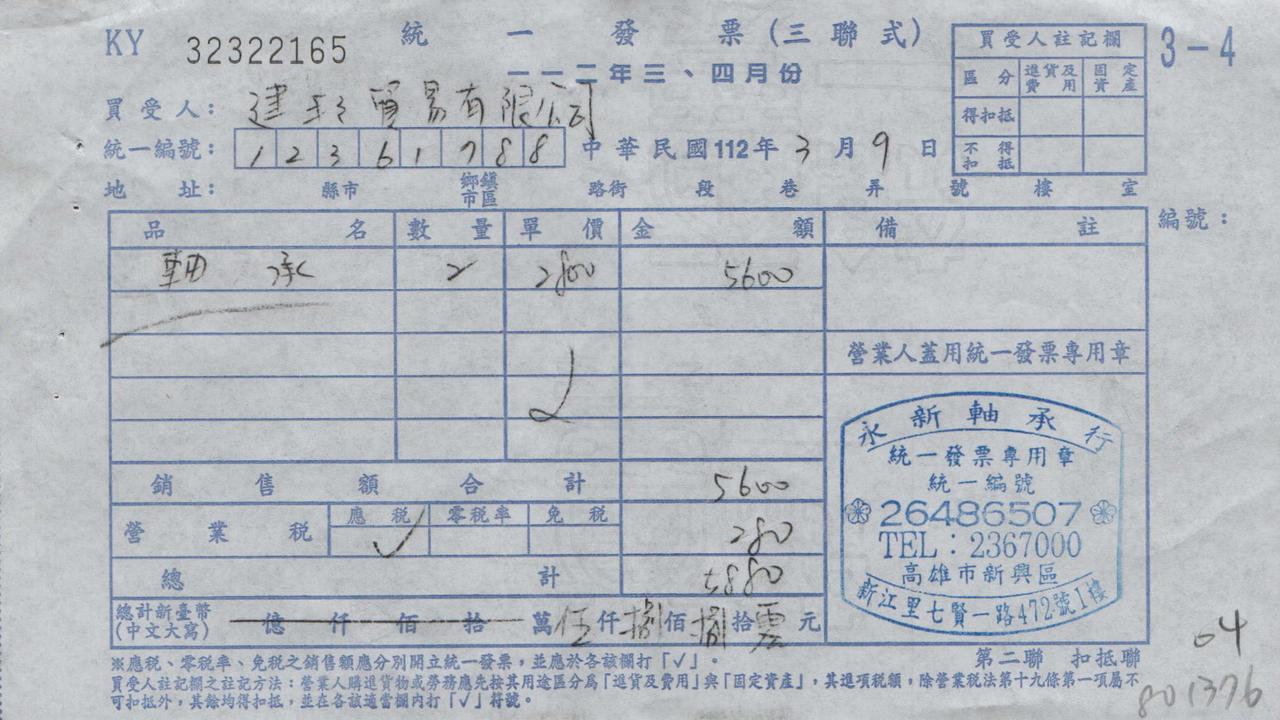 KY 32322165 統一發票(三聯式) 3-4
一一二年三、四月份
買受人註記欄
區分 進貨及費用 固定資產
得扣抵
不得扣抵
買受人: 建 貿易有限公司
統一編號: 12361788 中華民國112年3月9日
地址: 縣市 鄉鎮市區 路街 段 巷 弄 號 樓 室
編號:
品名 數量 單價 金額 備註
軸承 2 2800 5600
營業人蓋用統一發票專用章
銷售額合計 5600
營業稅 應稅 ✓ 零稅率 免稅 280
總計 5880
總計新臺幣(中文大寫) 億仟佰拾萬伍仟捌佰捌拾零元
永新軸承行
統一發票專用章
統一編號
26486507
TEL:2367000
高雄市新興區
新江里七賢一路472號1樓
※應稅、零稅率、免稅之銷售額應分別開立統一發票,並應於各該欄打「✓」。
第二聯 扣抵聯
買受人註記欄之註記方法:營業人購進貨物或勞務應先按其用途區分為「進貨及費用」與「固定資產」,其進項稅額,除營業稅法第十九條第一項屬不
可扣抵外,其餘均得扣抵,並在各該適當欄內打「✓」符號。
04
801376